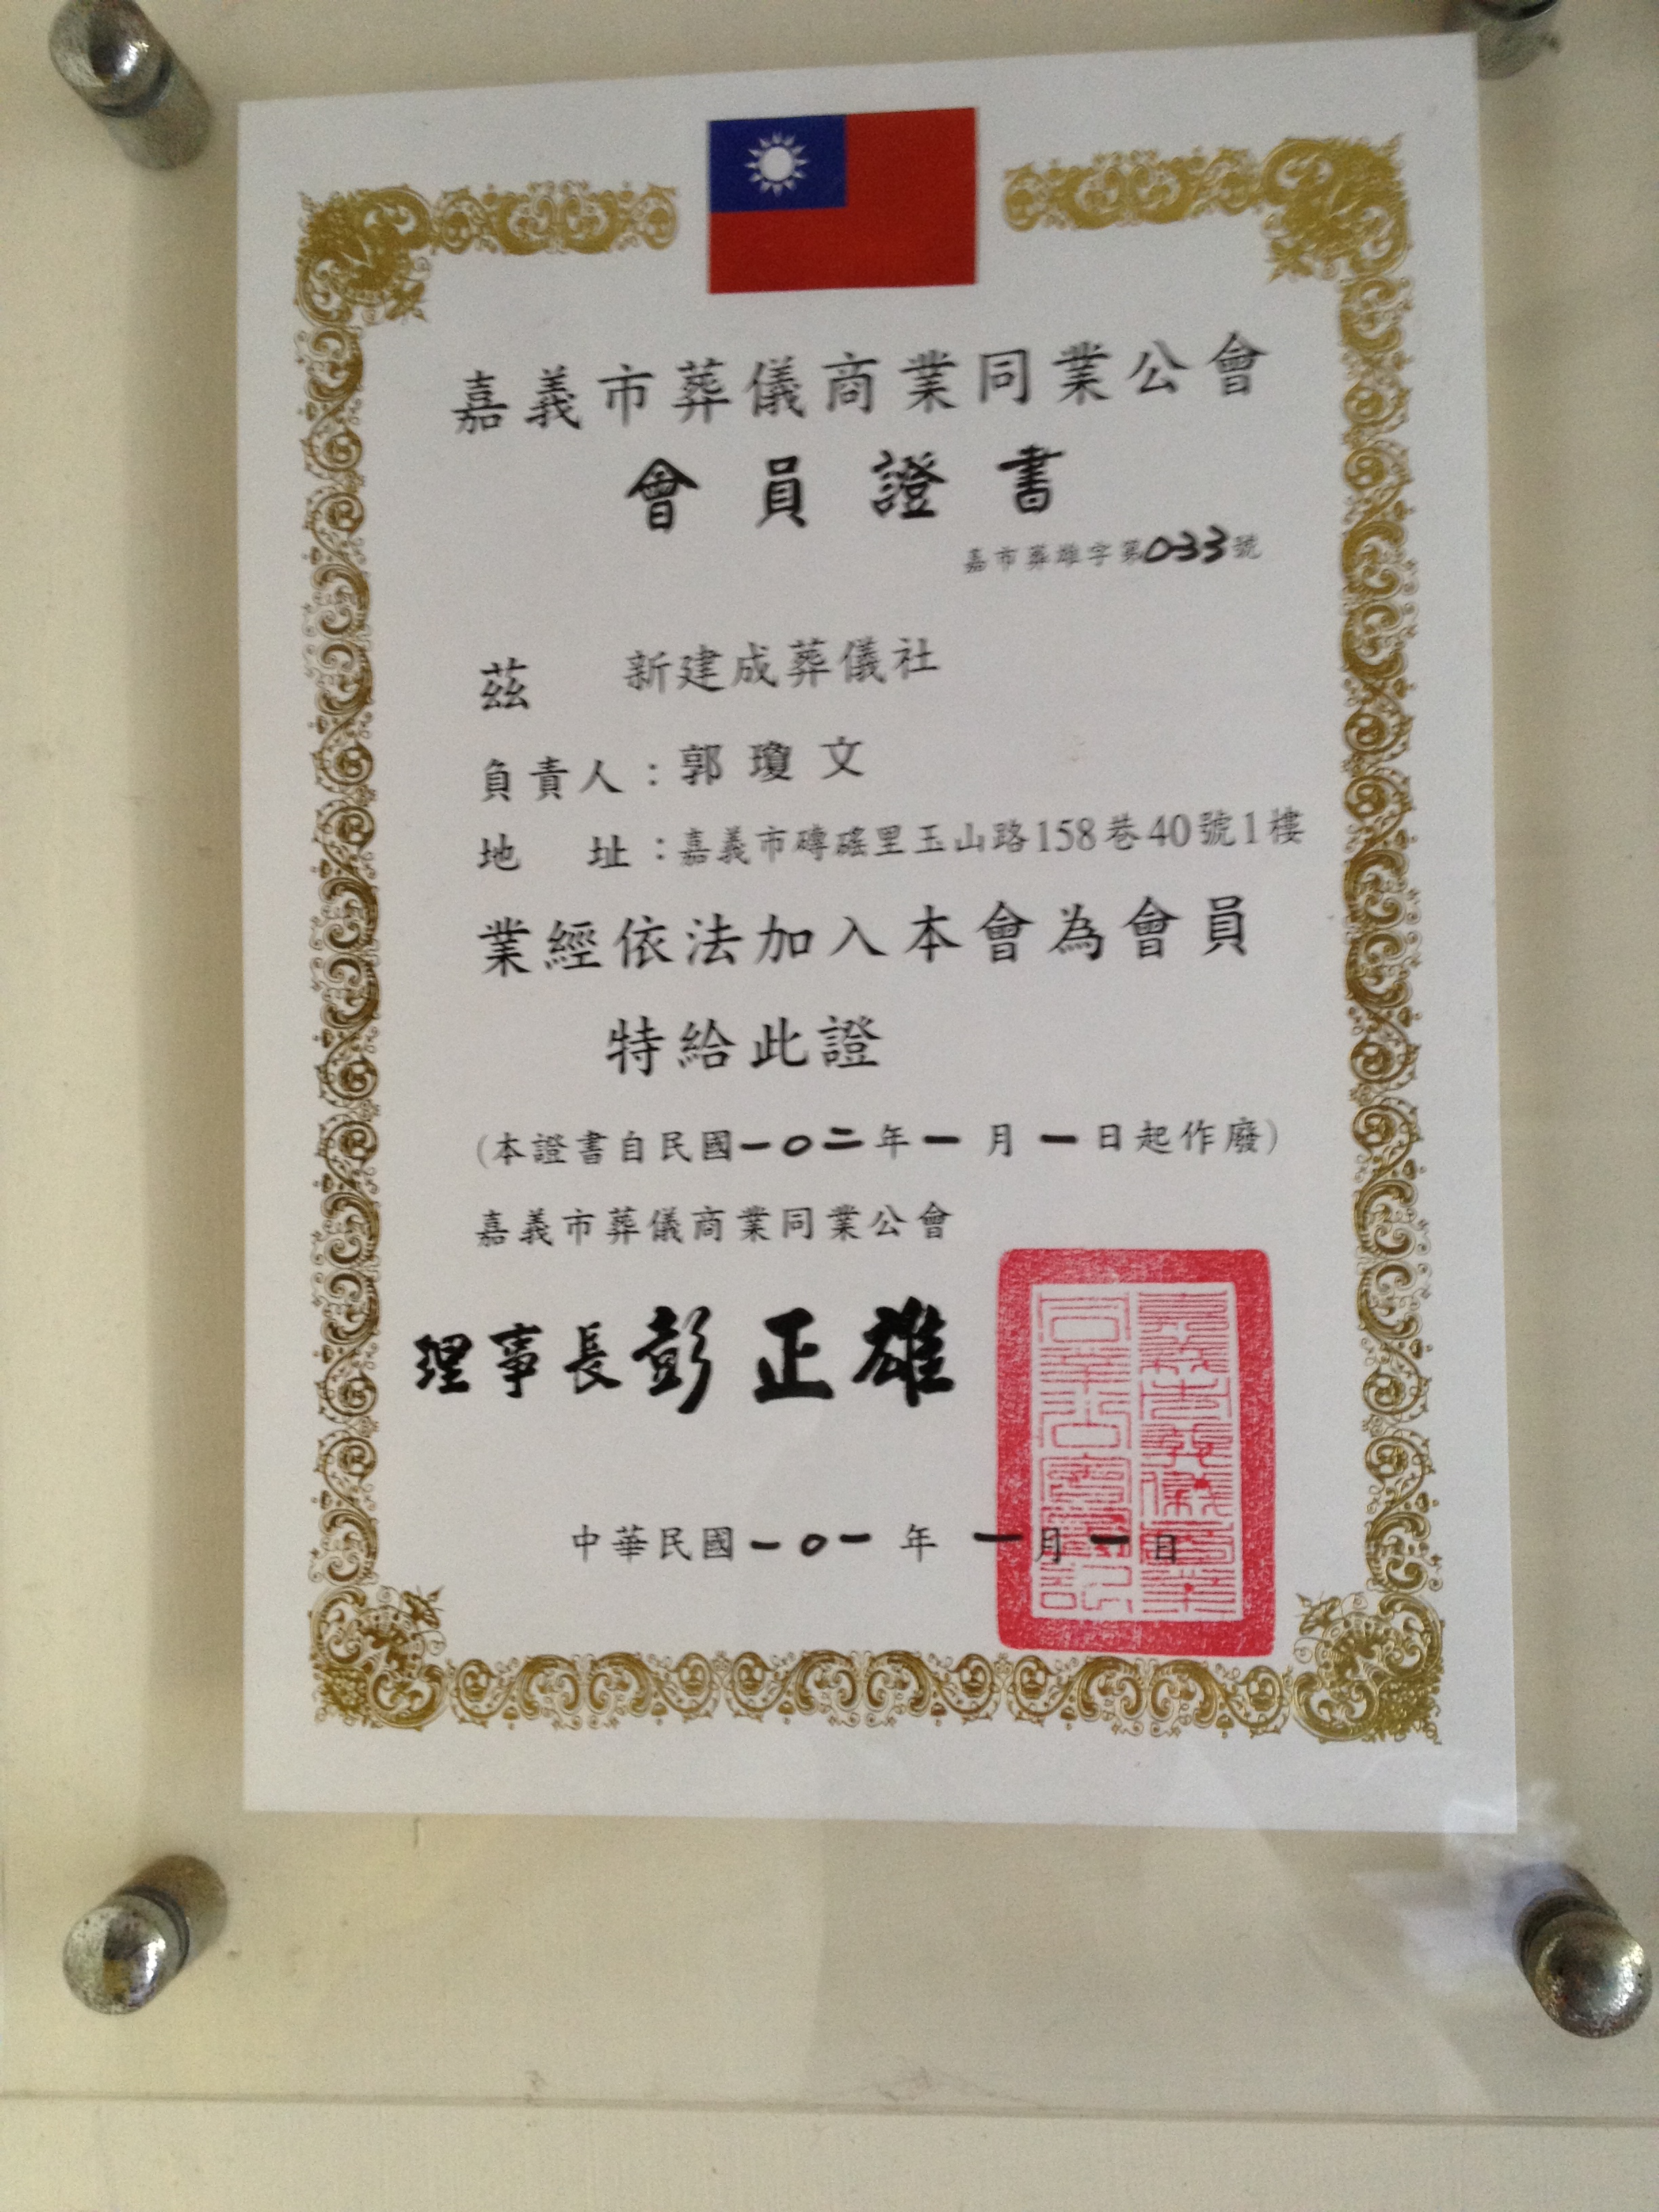 嘉義市葬儀商業同業公會
會員證書
嘉市葬雄字第033號
茲 新建成葬儀社
負責人：郭瓊文
地 址：嘉義市磚磘里玉山路158巷40號1樓
業經依法加入本會為會員
特給此證
(本證書自民國一0二年一月一日起作廢)
嘉義市葬儀商業同業公會
理事長彭正雄
嘉義市葬儀商業
同業公會圖記
中華民國一0一年一月一日